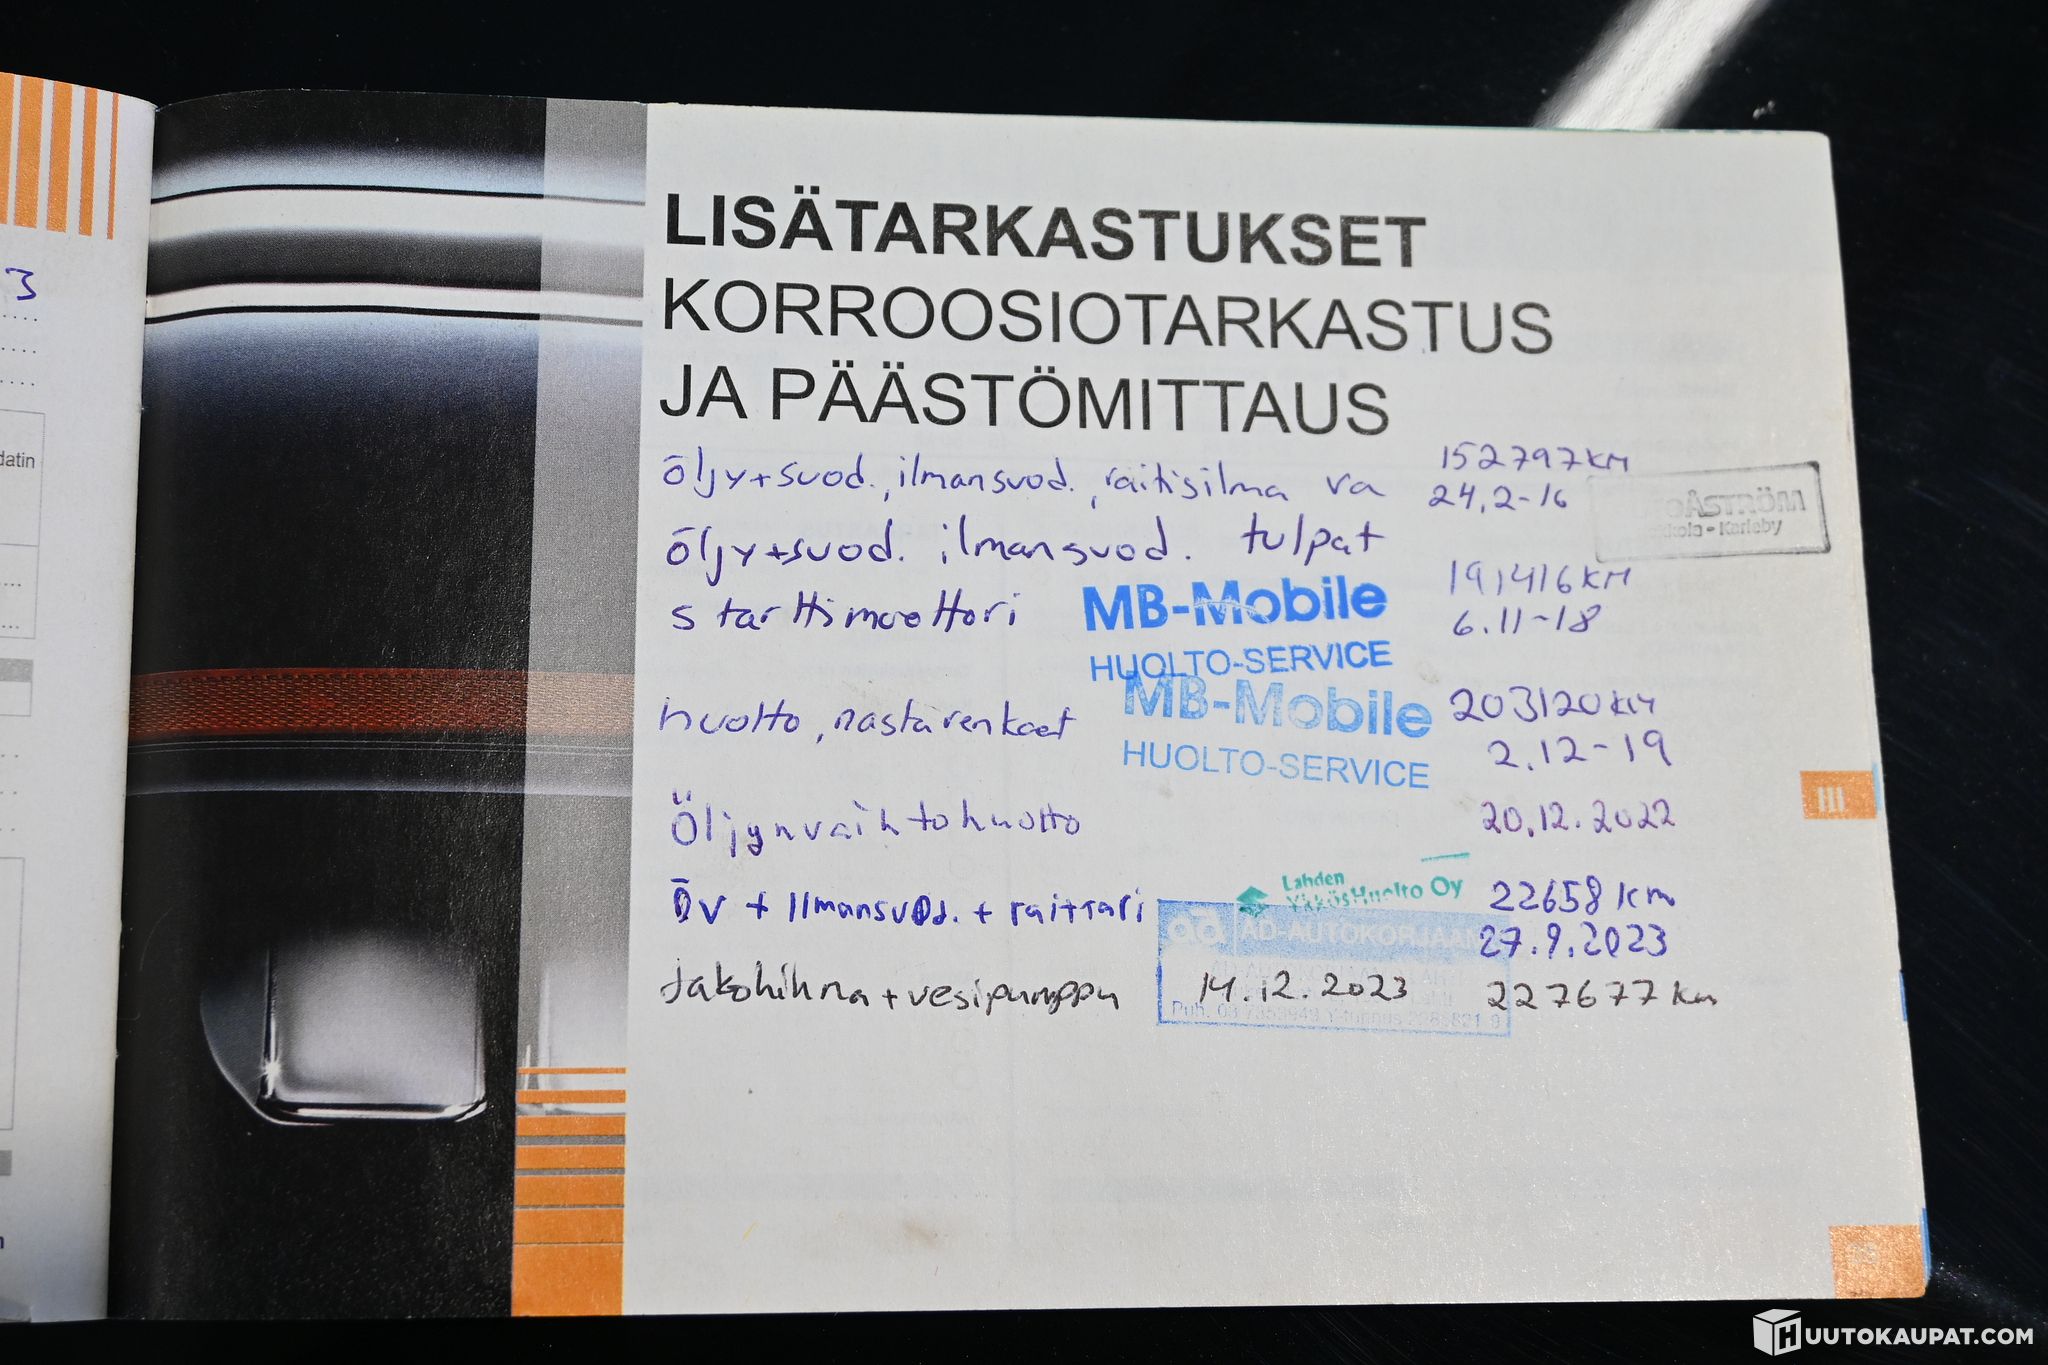 3
datin
LISÄTARKASTUKSET
KORROOSIOTARKASTUS
JA PÄÄSTÖMITTAUS
öljy+suod., ilmansuod., raitisilma va 152797KM
24.2-16
ÅSTRÖM
kkola - Karleby
öljy+suod. ilmansuod. tulpat
starttimoottori 191416KM
6.11-18
MB-Mobile
HUOLTO-SERVICE
huolto, nastarenkaat 203120KM
2.12-19
MB-Mobile
HUOLTO-SERVICE
Öljynvaihtohuolto 20.12.2022
Lahden
YkkösHuolto Oy
Öv + Ilmansuod. + raittari 22658 km
27.9.2023
ad AD-AUTOKORJAAM
Jakohihna + vesipumppu 14.12.2023 227677 km
Puh. 03 Y-tunnus
III
HUUTOKAUPAT.COM